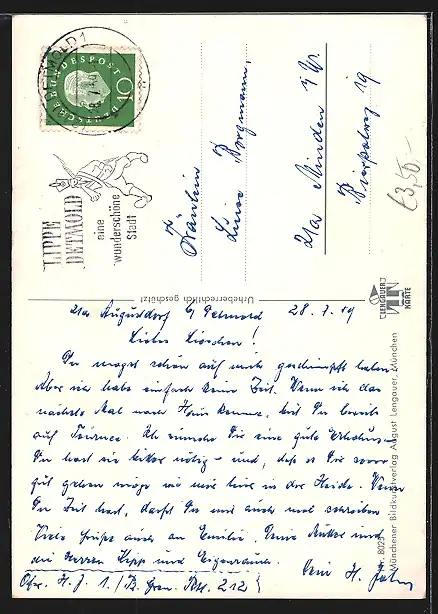 DETMOLD 1
DEUTSCHE BUNDESPOST
10
LIPPE
DETMOLD
eine
wunderschöne
Stadt
Fräulein
Luise Bergmann,
21a Minden i/W.
€3,50-
Urheberrechtlich geschützt!
LENGAUER
KARTE
Münchener Bildkunstverlag August Lengauer, München
Nr. 8025
21a Augustdorf b/ Detmold 28.7.59
Liebes Lieschen!
Du magst schön auf mich geschimpft haben.
Aber ich habe einfach keine Zeit. Wenn ich das
nächste Mal nach Hein komme, bist Du bereits
auf Tournee. Ich wünsche Dir eine gute Erholung –
Du hast sie bitter nötig – und, daß es Dir sonst
gut gehen möge wie mir hier in der Heide. Wenn
Du Zeit hast, darfst Du mir auch mal schreiben
Viele Grüße auch an Emilie, Deine Mutter und
die Herren Kipp und
Dein H. J.
212